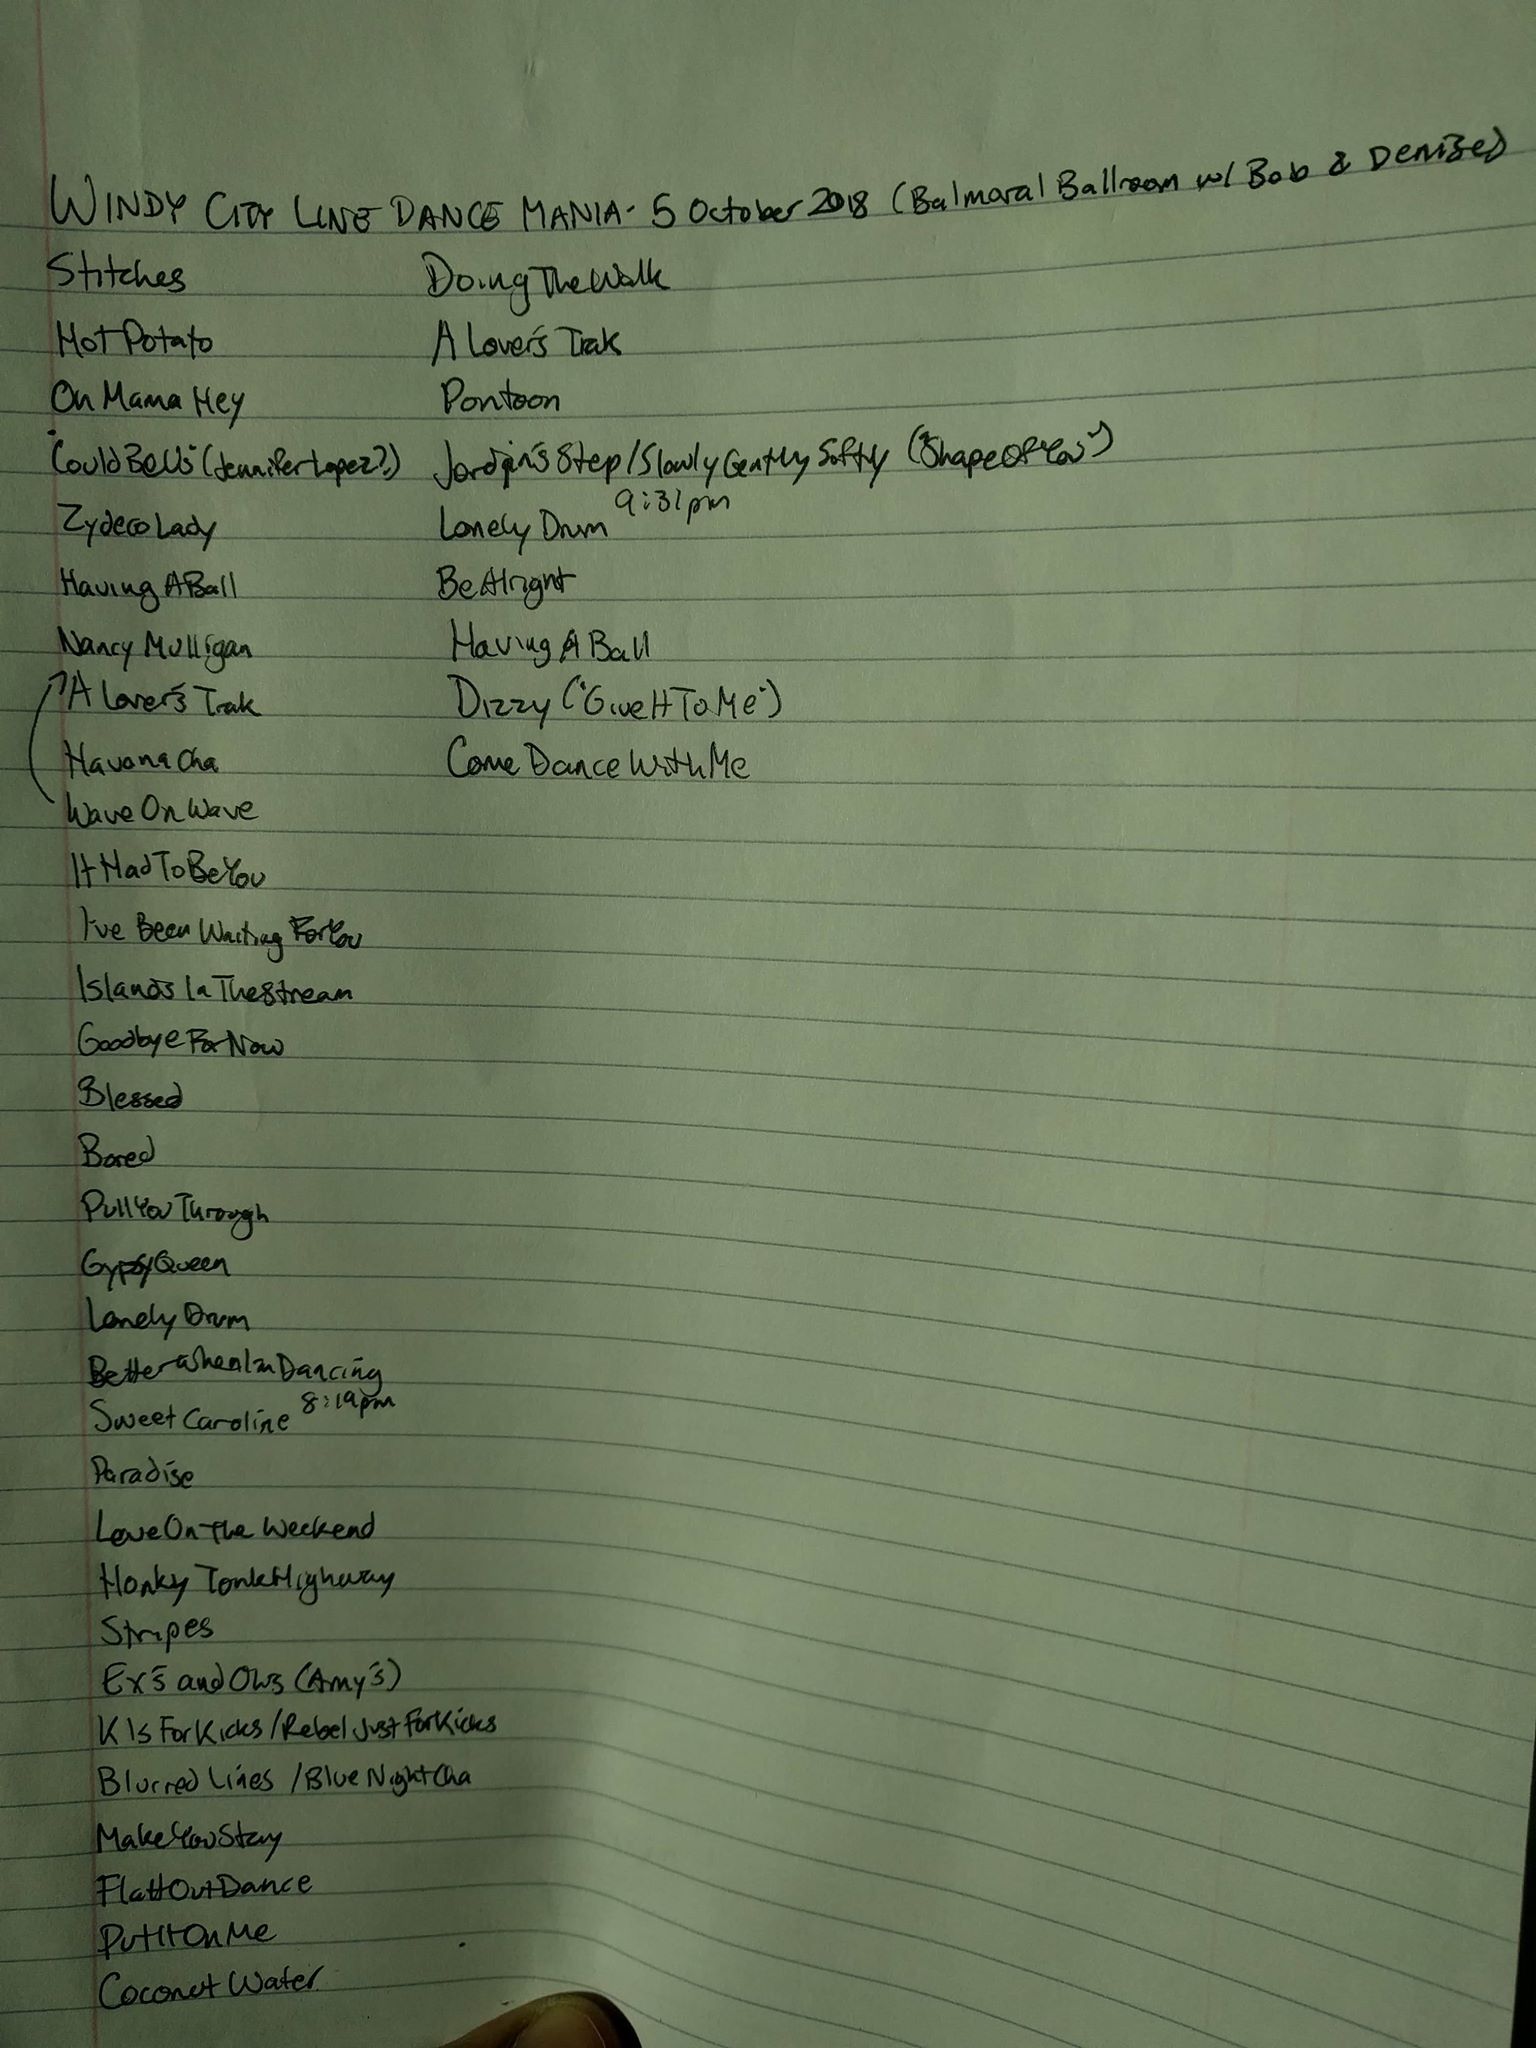 WINDY CITY LINE DANCE MANIA - 5 October 2018 (Balmoral Ballroom w/ Bob & Denise)
Stitches
Hot Potato
Oh Mama Hey
Could Be Us (Jennifer Lopez?)
Zydeco Lady
Having A Ball
Nancy Mulligan
A Lover's Trak
Havana Cha
Wave On Wave
It Had To Be You
I've Been Waiting For You
Islands In The Stream
Goodbye For Now
Blessed
Bored
Pull You Through
Gypsy Queen
Lonely Drum
Better When I'm Dancing
Sweet Caroline 8:19pm
Paradise
Love On The Weekend
Honky Tonk Highway
Stripes
Ex's and Oh's (Amy's)
K Is For Kicks / Rebel Just For Kicks
Blurred Lines / Blue Night Cha
Make You Stay
Flatt Out Dance
Put It On Me
Coconut Water
Doing The Walk
A Lover's Trak
Pontoon
Step / Slowly Gently Softly ("Shape Of You")
Lonely Drum 9:31pm
Be Alright
Having A Ball
Dizzy ("Give It To Me")
Come Dance With Me